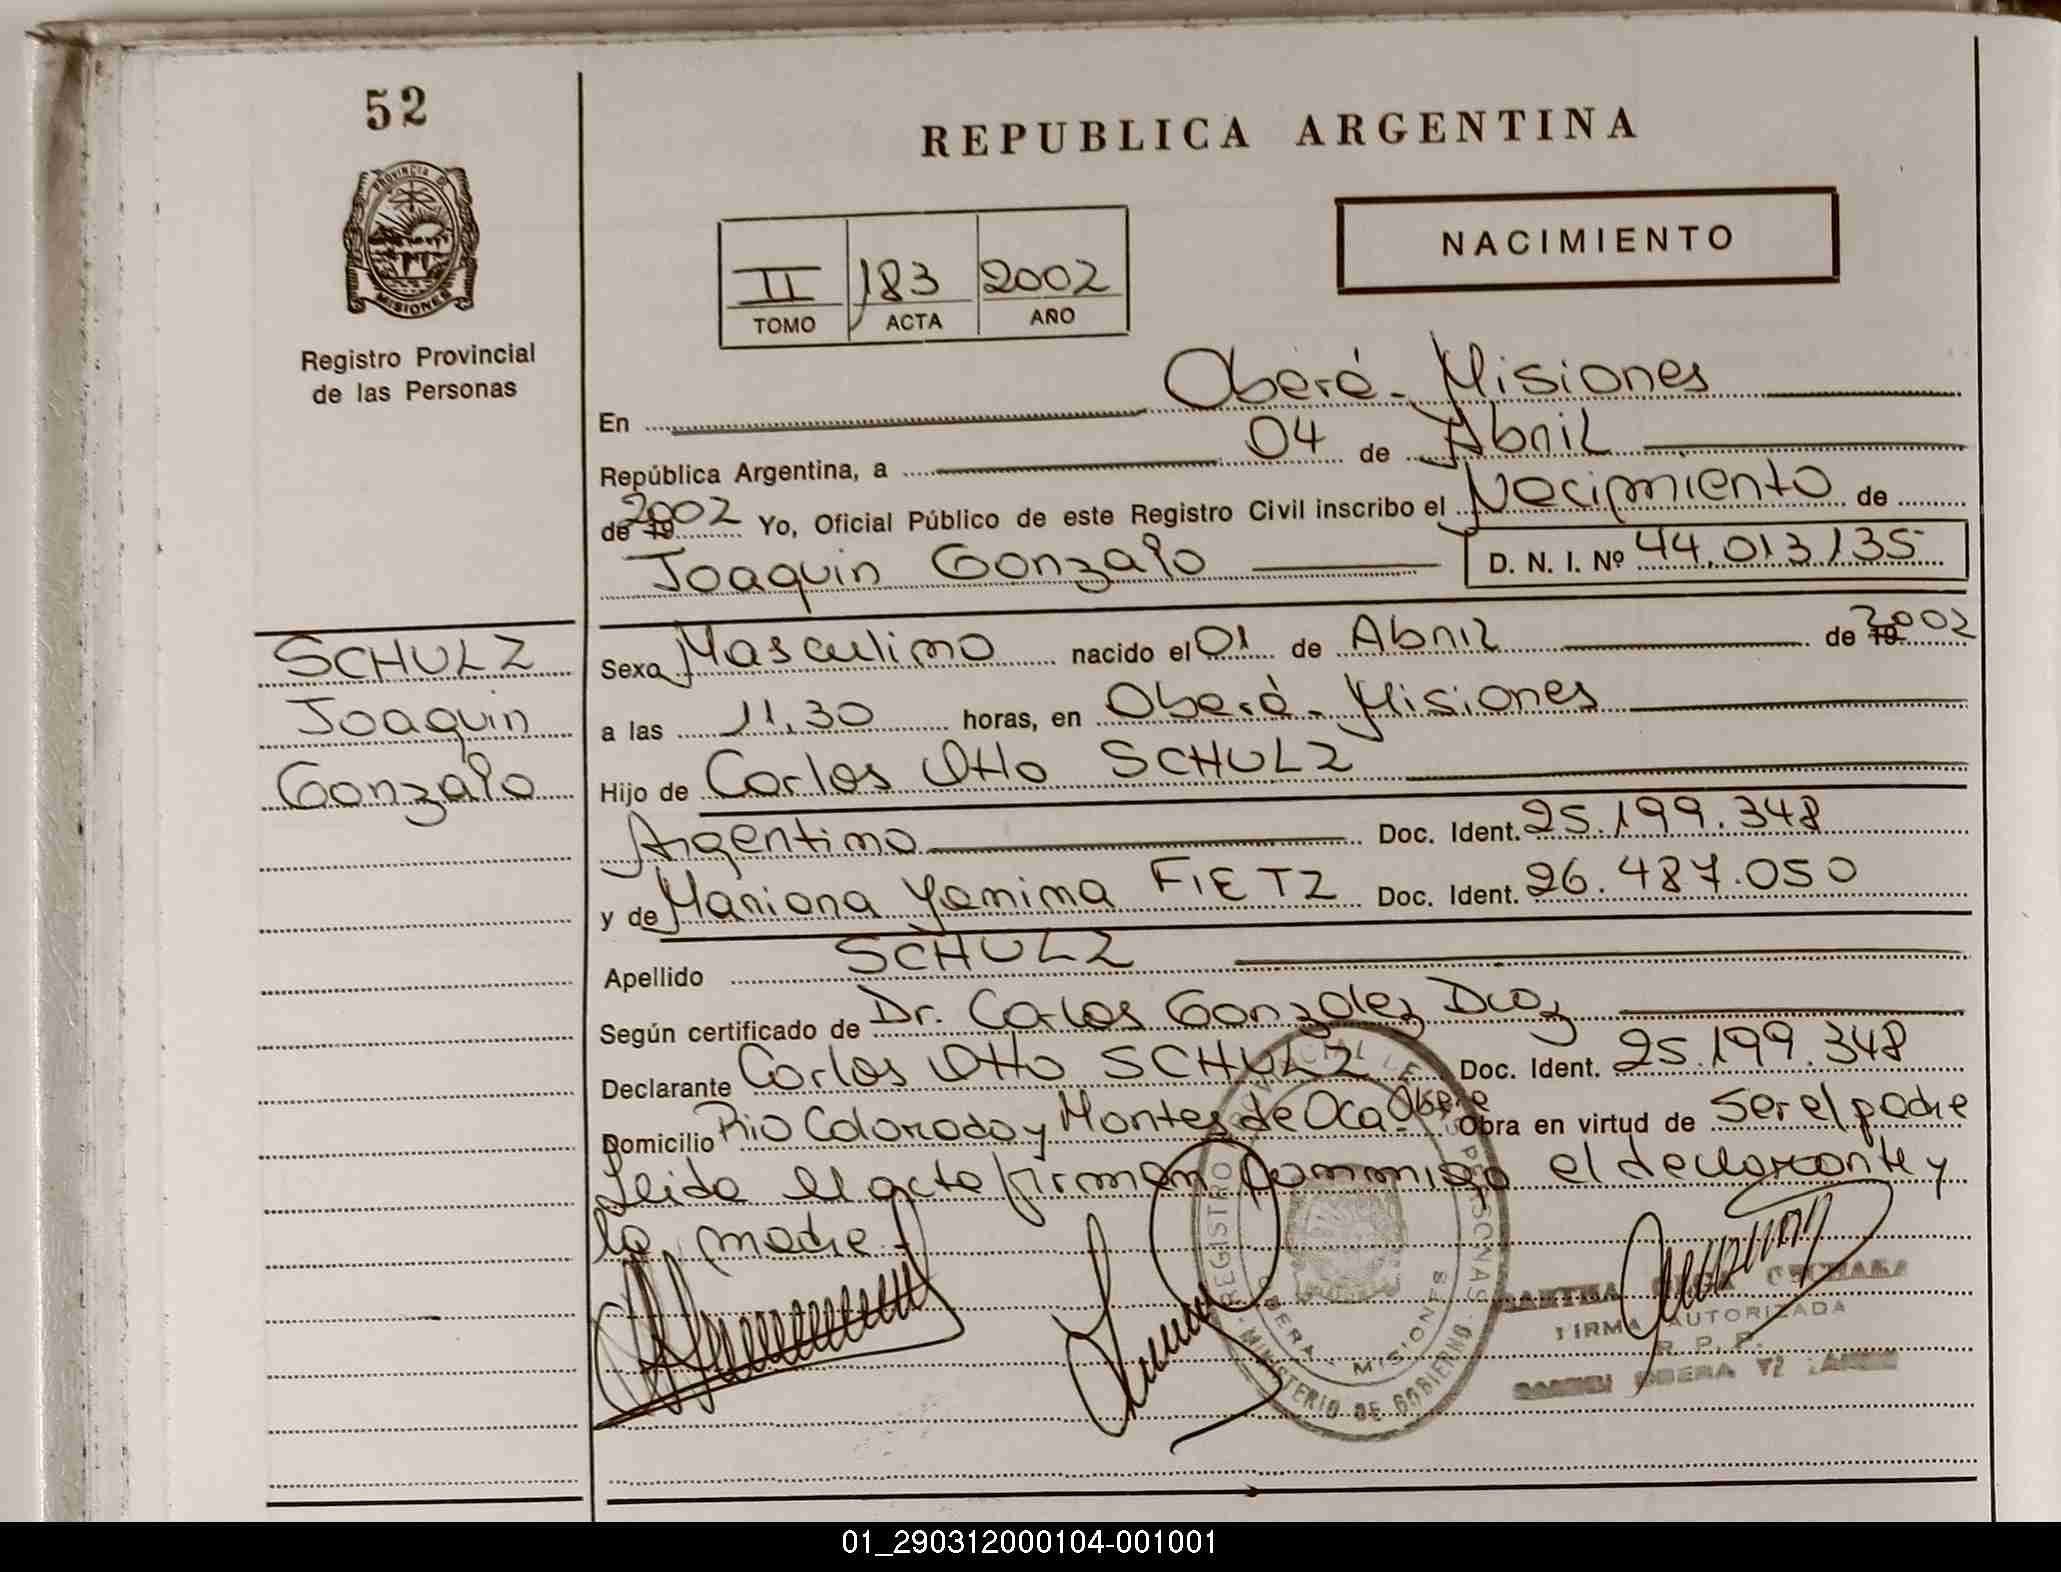 52
PROVINCIA D
MISIONES
Registro Provincial
de las Personas
REPUBLICA ARGENTINA
NACIMIENTO
II 183 2002
TOMO ACTA AÑO
En Oberá - Misiones
República Argentina, a 04 de Abril
de 19 2002 Yo, Oficial Público de este Registro Civil inscribo el Nacimiento de
Joaquin Gonzalo D. N. I. Nº 44.013.135
SCHULZ
Joaquin
Gonzalo
Sexo Masculino nacido el 01 de Abril de 19 2002
a las 11,30 horas, en Oberá - Misiones
Hijo de Carlos Otto SCHULZ
Argentino Doc. Ident. 25.199.348
y de Mariana Yamima FIETZ Doc. Ident. 26.487.050
Apellido SCHULZ
Según certificado de Dr. Carlos Gonzalez Diaz
Declarante Carlos Otto SCHULZ Doc. Ident. 25.199.348
Domicilio Rio Colorado y Montes de Oca - Oberá Obra en virtud de ser el padre
Leida el acta firman conmigo el declarante y
la madre.
REGISTRO PROVINCIAL DE LAS PERSONAS
OBERA MISIONES
MINISTERIO DE GOBIERNO
FIRMA AUTORIZADA
R. P. P.
OBERA
01_290312000104-001001